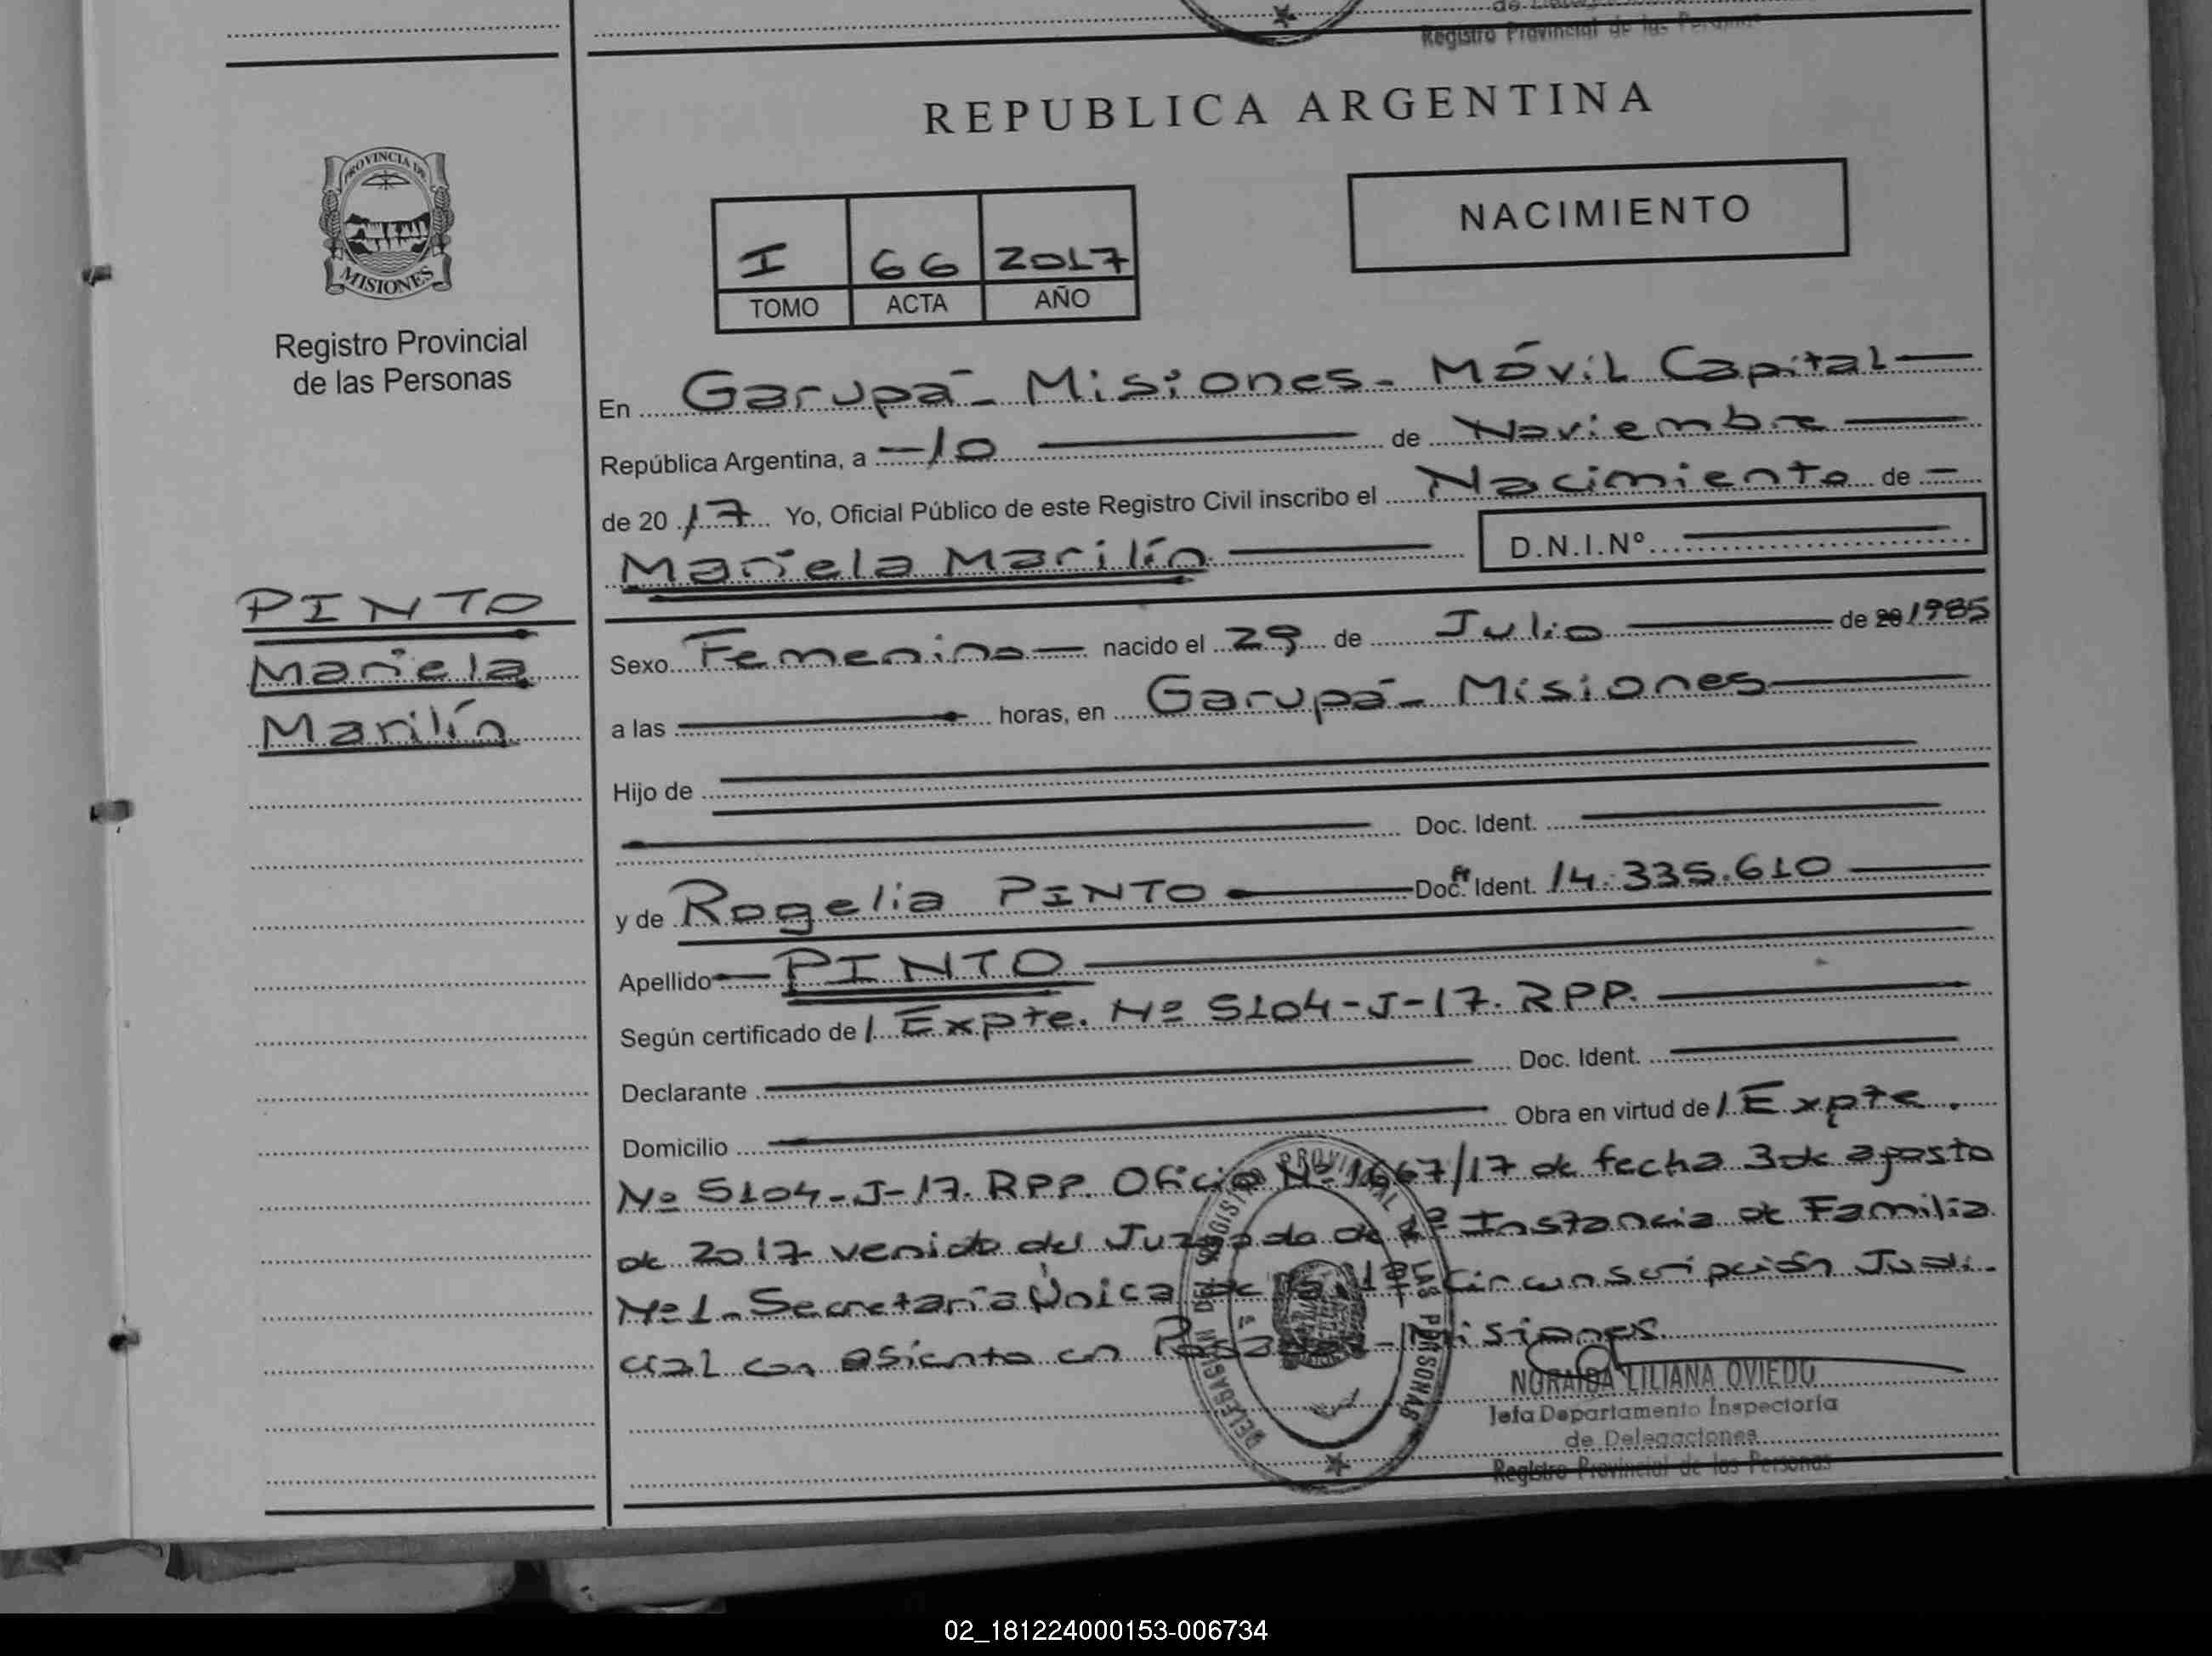 Registro Provincial de las Personas
REPUBLICA ARGENTINA
PROVINCIA DE
MISIONES
Registro Provincial
de las Personas
NACIMIENTO
I 66 2017
TOMO ACTA AÑO
En Garupá - Misiones - Móvil Capital
República Argentina, a 10 de Noviembre
de 2017 Yo, Oficial Público de este Registro Civil inscribo el Nacimiento de
Mariela Marilín D.N.I.Nº
PINTO
Mariela
Marilín
Sexo Femenino nacido el 29 de Julio de 20 1985
a las horas, en Garupá - Misiones
Hijo de
Doc. Ident.
y de Rogelia PINTO Doc. Ident. 14.335.610
Apellido PINTO
Según certificado de / Expte. Nº 5104-J-17. RPP.
Declarante Doc. Ident.
Domicilio Obra en virtud de / Expte.
Nº 5104-J-17. RPP. Oficio Nº 1667/17 de fecha 3 de agosto
de 2017 venido del Juzgado de 1º Instancia de Familia
Nº 1 - Secretaría Única de la 1º Circunscripción Judi-
cial con asiento en Posadas - Misiones
DELEGACION DEL REGISTRO PROVINCIAL DE LAS PERSONAS
NORAIDA LILIANA OVIEDO
Jefa Departamento Inspectoría
de Delegaciones
Registro Provincial de las Personas
02_181224000153-006734